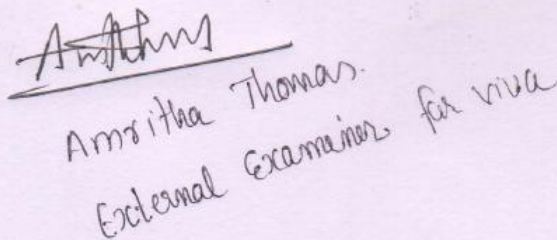 Amritha Thomas.
External Examiner for viva